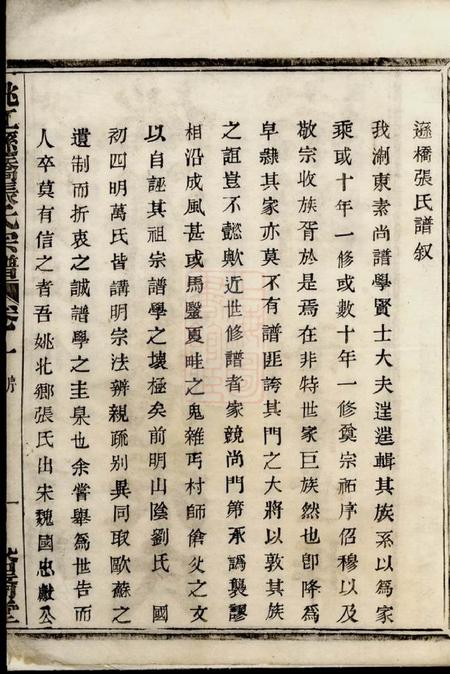 遜橋張氏譜叙
我浙東素尚譜學賢士大夫逞逞輯其族系以為家
乘或十年一修或數十年一修奠宗祏序佋穆以及
敬宗收族胥於是焉在非特世家巨族然也卽降為
皁隸其家亦莫不有譜匪誇其門之大將以敦其族
之誼豈不懿歟近世修譜者家競尚門第承譌襲謬
相沿成風甚或馬鬣夏畦之鬼雜丐村師傖父之文
以自誣其祖宗譜學之壞極矣前明山陰劉氏 國
初四明萬氏皆講明宗法辨親疏別異同取歐蘇之
遺制而折衷之誠譜學之圭臬也余嘗舉為世告而
人卒莫有信之者吾姚北鄉張氏出宋魏國忠獻公
姚江遜橋張氏宗譜 卷一
一